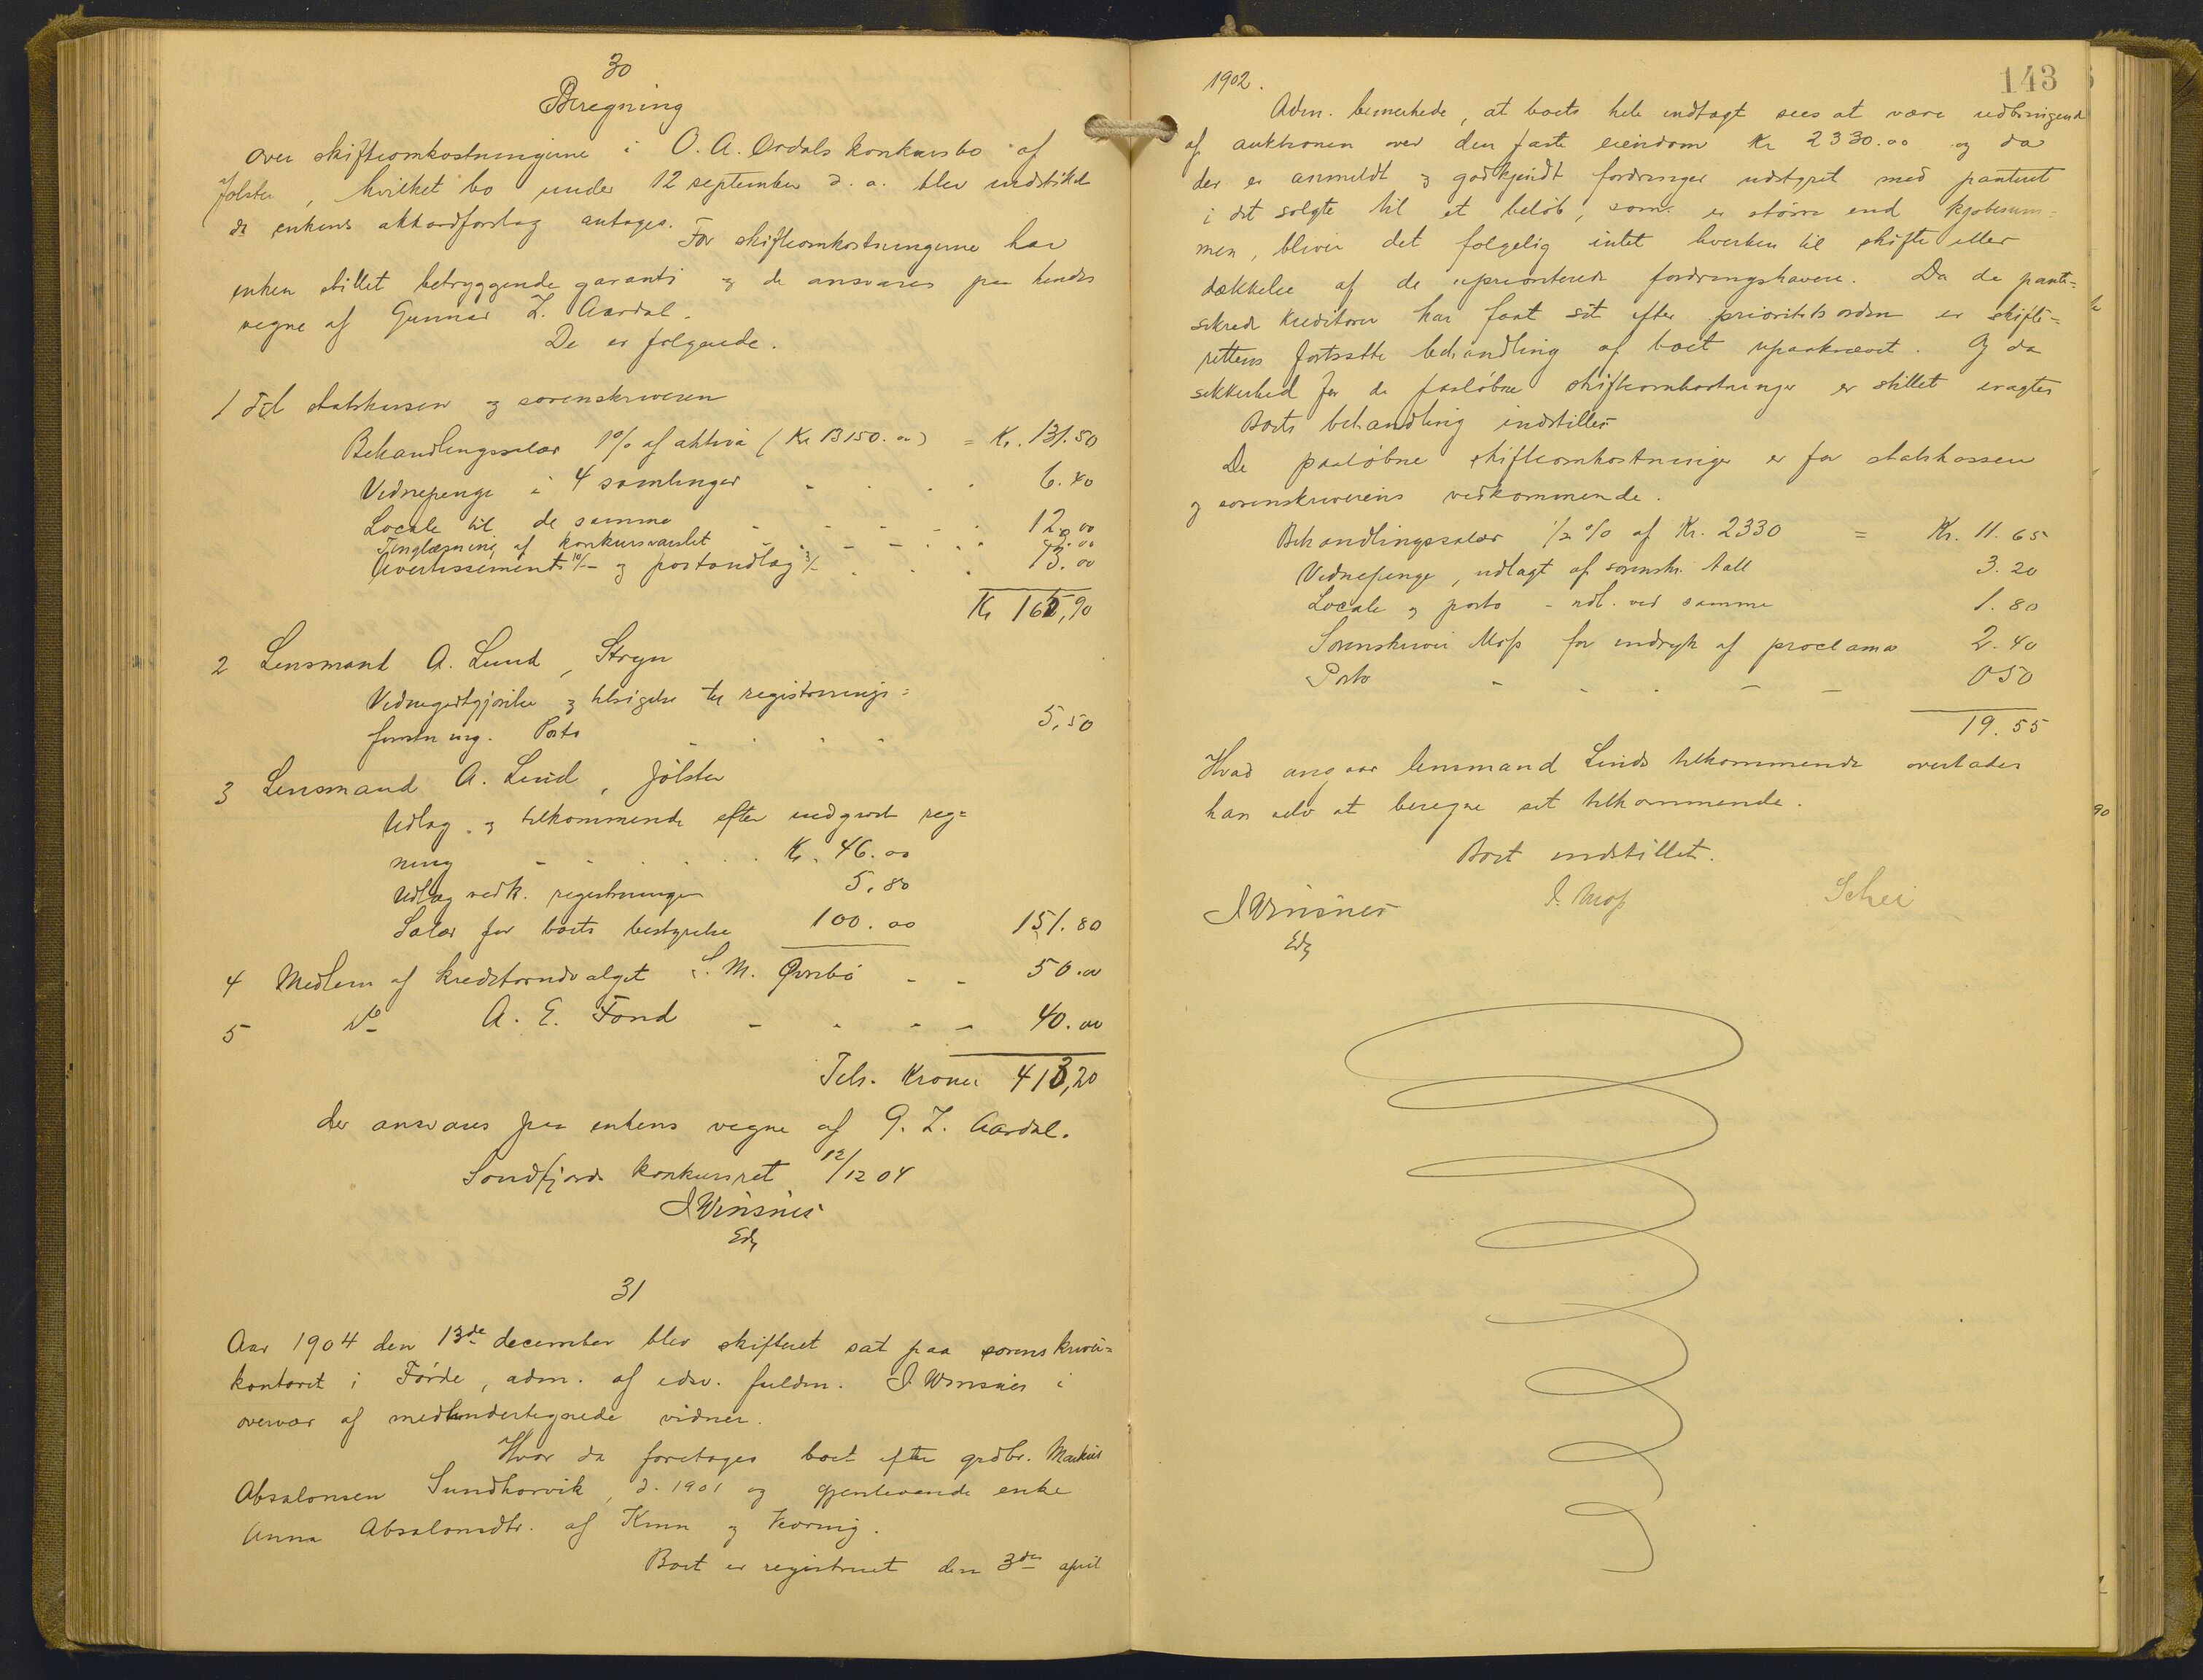 30
Beregning
over skifteomkostningerne i O. A. Ordals konkursbo af
Jølster, hvilket bo under 12 september d. a. blev indstillet
da enkens akkordforslag antoges. For skifteomkostningerne har
enken stillet betryggende garanti og de ansvares paa hendes
vegne af Gunnar L. Aardal.
De er følgende.
1 Til statskassen og sorenskriveren
Behandlingssalær 1% af aktiva (Kr 13150.00) = Kr. 131.50
Vidnepenge i 4 samlinger - - - - 6.40
Locale til de samme - - - - - 12.00
Tinglæsning af konkursvarslet - - - - -
Avertissement 10/- og portoudlæg 3/- - - - 13.00
Kr 165,90
2 Lensmand A. Lund, Stryn
Vidnegodtgjørelse og tilsigelse til registrerings=
forretning. Porto - - - - 5,50
3 Lensmand A. Lind, Jølster
Udlæg og tilkommende efter indgivet reg=
ning - - - - - - Kr. 46.00
Udlæg vedk. registreringen 5,80
Salær for boets bestyrelse 100.00 151.80
4 Medlem af kreditorudvalget S. M. Øvrebø - - 50.00
5 do A. E. Fond - - - - 40.00
Tils. Kroner 413,20
der ansvares paa enkens vegne af G. L. Aardal.
Søndfjords konkursret 12/12 04
J Winsnes
Edsv
31
Aar 1904 den 13de december blev skifteret sat paa sorenskriver=
kontoret i Førde, adm. af edsv. fuldm. J. Winsnes i
overvær af medundertegnede vidner.
Hvor da foretoges boet efter grdbr. Markus
Absalonsen Sundhorvik, d. 1901 og gjenlevende enke
Anna Absalonsdtr. af Kinn og
Boet er registreret den 3die april
143
1902.
Adm. bemerkede, at boets hele indtægt sees at være udbringende
af auktionen over den faste eiendom Kr 2330.00 og da
der er anmeldt og godkjendt fordringer udstyret med panteret
i det solgte til et beløb, som er større end kjøbesum=
men, bliver det følgelig intet hverken til skifte eller
dækkelse af de upriorterede fordringshavere. Da de pante=
sikrede kreditorer har faat sit efter prioritetsorden er skifte=
rettens fortsatte behandling af boet upaakrævet. Og da
sikkerhed for de paaløbne skifteomkostninger er stillet eragtes
Boets behandling indstilles
De paaløbne skifteomkostninger er for statskassen
og sorenskriverens vedkommende.
Behandlingssalær 1/2 % af Kr. 2330 = Kr. 11.65
Vidnepenge, udlagt af sorenskr. Aall 3.20
Locale og porto - udl. ved samme 1.80
Sorenskriver Moss for indryk af proclama 2.40
Porto - - - - - 0 50
19.55
Hvad angaar lensmand Linds tilkommende overlades
han selv at beregne sit tilkommende.
Boet indstillet.
J Winsnes J. Moss Schei
Edsv
90